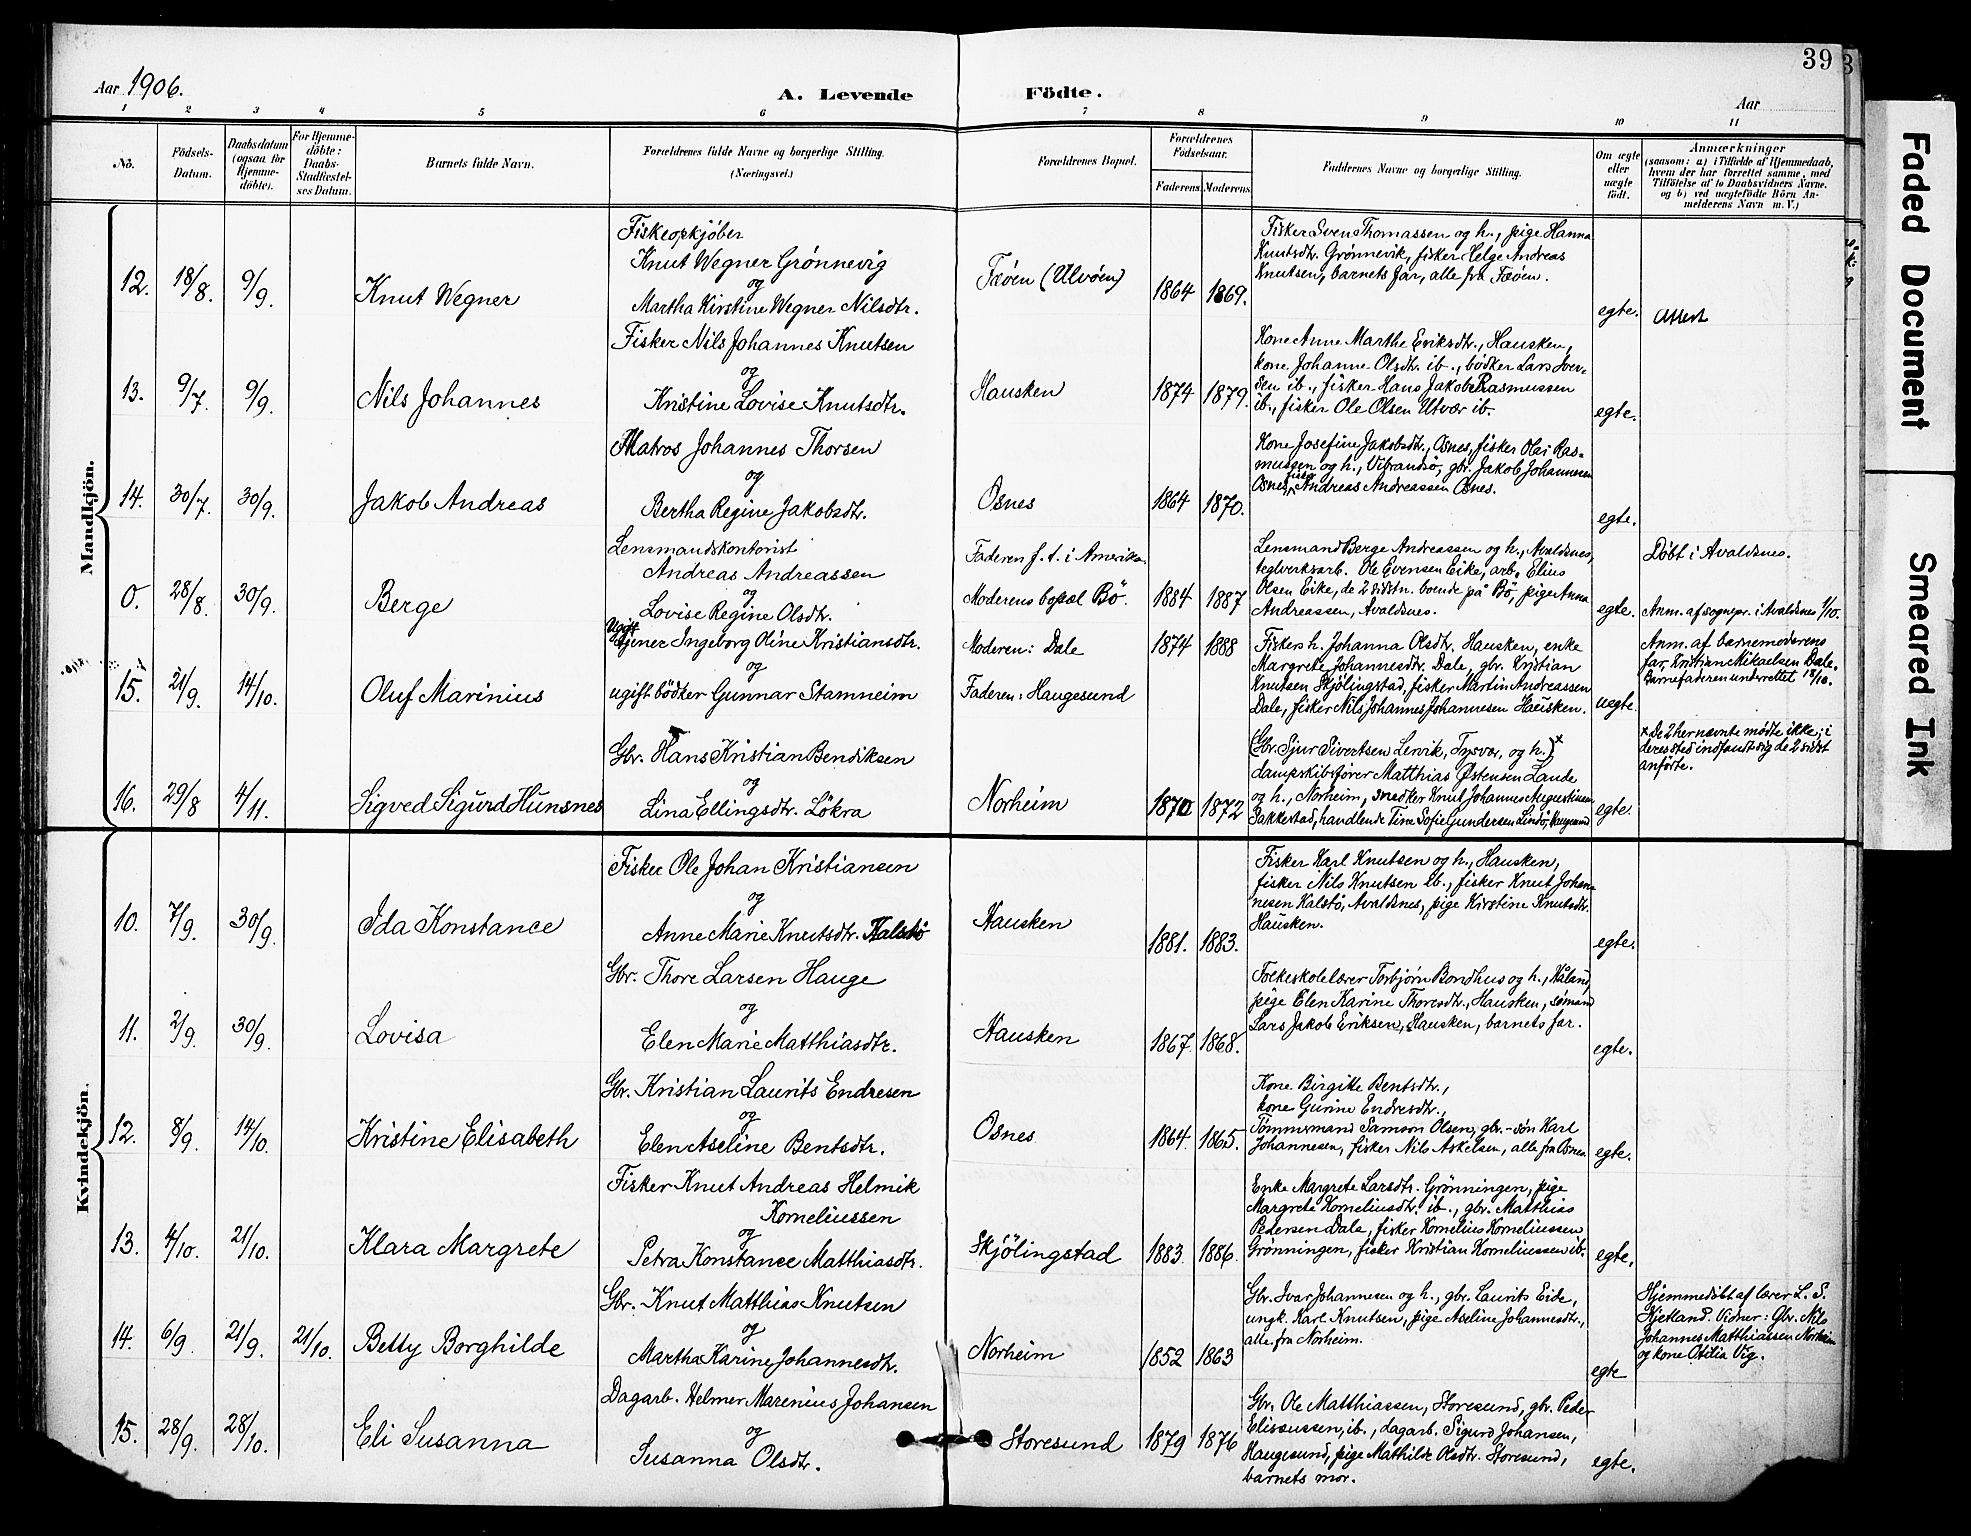 39
Aar 1906.
A. Levende Födte.
Aar
1 2 3 4 5 6 7 8 9 10 11
No.
Födsels-Datum.
Daabsdatum (ogsaa for Hjemme-döbte).
For Hjemme-döbte: Daabs-Stadfæstel-ses Datum.
Barnets fulde Navn.
Forældrenes fulde Navne og borgerlige Stilling. (Næringsvei.)
Forældrenes Bopæl.
Forældrenes Födselsaar.
Faderens. Moderens.
Faddernes Navne og borgerlige Stilling.
Om ægte eller uægte födt.
Anmærkninger
(saasom: a) i Tilfælde af Hjemmedaab, hvem der har forrettet samme, med Tilföielse af to Daabsvidners Navne. og b) ved uægtefödte Börn An-melderens Navn m. V.)
Mandkjön.
12. 18/8. 9/9. Knut Wegner
Fiskeopkjøber
Knut Wegner Grönnevig
og
Martha Kirstine Wegner Nilsdtr.
Fæöen (Ulvöen) 1864 1869.
Fisker Sven Thomassen og h., pige Hanna
Knutsdt. Grönnevik, fisker Helge Andreas
Knutsen, barnets far, alle fra Fæöen.
egte. Attest
13. 9/7. 9/9. Nils Johannes
Fisker Nils Johannes Knutsen
og
Kristine Lovise Knutsdtr.
Hausken 1874 1879.
Kone Anne Marthe Eriksdtr., Hausken,
kone Johanne Olsdtr. ib., bödker Lars Iver-
sen ib., fisker Hans Jakob Rasmussen
ib., fisker Ole Olsen Utvær ib.
egte.
14. 30/7. 30/9. Jakob Andreas
Matros Johannes Thorsen
og
Bertha Regine Jakobsdtr.
Osnes 1864 1870.
Kone Josefine Jakobsdtr., Osnes, fisker Olai Ras-
mussen og h., Vibrandsö, gbr. Jakob Johannesen
Osnes, fisker Andreas Andreassen Osnes.
egte.
0. 28/8. 30/9. Berge
Lensmandskontorist
Andreas Andreassen
og
Lovise Regine Olsdtr.
Faderen f. t. i Amerika.
Moderens bopæl Bö. 1884 1887
Lensmand Berge Andreassen og h., Avaldsnes,
teglverksarb. Ole Evensen Eike, arb. Elius
Olsen Eike, de 2 sidstn. boende på Bö, pige Anna
Andreassen, Avaldsnes.
egte.
Döbt i Avaldsnes.
Anm. af sognepr. i Avaldsnes 1/10.
15. 21/9. 14/10. Oluf Marinius
Ugift
tjener Ingeborg Oline Kristiansdtr.
og
ugift bödker Gunnar Stamneim
Moderen: Dale 1874 1888
Faderen: Haugesund
Fiskers h. Johanna Olsdt. Hausken, enke
Margrete Johannesdtr. Dale, gbr. Kristian
Knutsen Skjölingstad, fisker Martin Andreassen
Dale, fisker Nils Johannes Johannesen Hausken.
uegte.
Anm. af barnemoderens
far, Kristian Mikaelsen Dale.
Barnefaderen underrettet 18/10.
16. 29/8 4/11. Sigved Sigurd Hunsnes
Gbr. Hans Kristian Bendiksen
og
Lina Ellingsdtr. Lökra
Norheim 1870 1872
(Gbr. Sjur Sivertsen Lervik, Tysvær, og h.)x
dampskibsförer Matthias Östensen Lande
og h., Norheim, snedker Knut Johannes Augustinsen
Bakkestad, handlende Tine Sofie Gundersen Lindö, Haugesund
egte.
x De 2 hernævnte mödte ikke; i
deres sted indfandt sig de 2 sidst
anförte.
Kvindekjön.
10. 7/9. 30/9. Ida Konstance
Fisker Ole Johan Kristiansen
og
Anne Marie Knutsdtr. Kalstö
Hausken 1881. 1883.
Fisker Karl Knutsen og h., Hausken,
fisker Nils Knutsen ib., fisker Knut Johan-
nesen Kalstö, Avaldsnes, pige Kirstine Knutsdtr.
Hausken.
egte.
11. 2/9. 30/9. Lovisa
Gbr. Thore Larsen Hauge
og
Elen Marie Matthiasdtr.
Hausken 1867. 1868.
Folkeskolelærer Torbjörn Bondhus og h., Våland,
pige Elen Karine Thoresdtr., Hausken, sömand
Lars Jakob Eriksen, Hausken, barnets far.
egte.
12. 8/9. 14/10. Kristine Elisabeth
Gbr. Kristian Laurits Endresen
og
Elen Aseline Bentsdtr.
Osnes 1864. 1865.
Kone Birgitte Bentsdtr.,
kone Gurine Endresdtr.,
Tömmermand Samson Olsen, gbr.-sön Karl
Johannesen, fisker Nils Askelsen, alle fra Osnes.
egte.
13. 4/10. 21/10. Klara Margrete
Fisker Knut Andreas Helmik
Korneliussen
og
Petra Konstance Matthiasdtr.
Skjölingstad 1883. 1886.
Enke Margrete Larsdtr. Grönningen, pige
Margrete Korneliusdtr. ib., gbr. Matthias
Pedersen Dale, fisker Kornelius Korneliussen
Grönningen, fisker Kristian Korneliussen ib.
egte.
14. 6/9. 21/9. 21/10. Betty Borghilde
Gbr. Knut Matthias Knutsen
og
Martha Karine Johannesdtr.
Norheim 1852 1863
Gbr. Ivar Johannesen og h., gbr. Laurits Eide,
ungk. Karl Knutsen, pige Aseline Johannesdtr.,
alle fra Norheim.
egte
Hjemmedöbt af lærer L. S.
Kjetland. Vidner: Gbr. Nils
Johannes Matthiassen Norheim
og kone Otilia Vig.
15. 28/9. 28/10. Eli Susanna
Dagarb. Helmer Marenius Johansen
og
Susanna Olsdtr.
Storesund 1879 1876
Gbr. Ole Matthiassen, Storesund, gbr. Peder
Eliassen, ib., dagarb. Sigurd Johansen,
Haugesund, pige Mathilde Olsdtr. Storesund,
barnets mor.
egte.
Faded Document
Smeared Ink